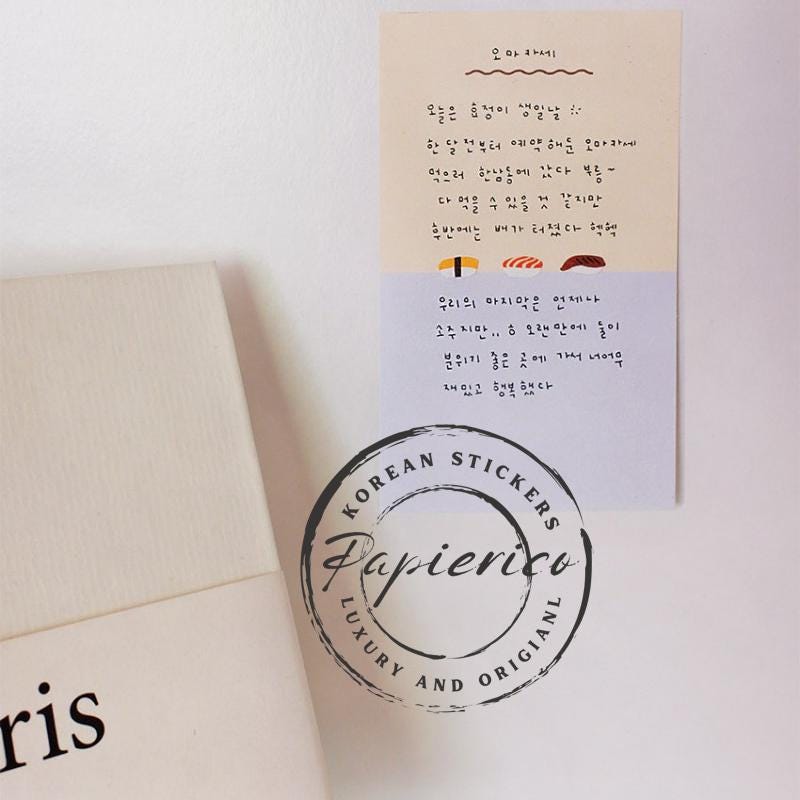 오마카세
오늘은 효정이 생일날
한 달 전부터 예약해둔 오마카세
먹으러 한남동에 갔다 부릉~
다 먹을 수 있을 것 같지만
후반에는 배가 터졌다 헥헥
우리의 마지막은 언제나
소주지만,, ㅎ 오랜만에 둘이
분위기 좋은 곳에 가서 너어무
재밌고 행복했다
KOREAN STICKERS
Papierico
LUXURY AND ORIGIANL
ris